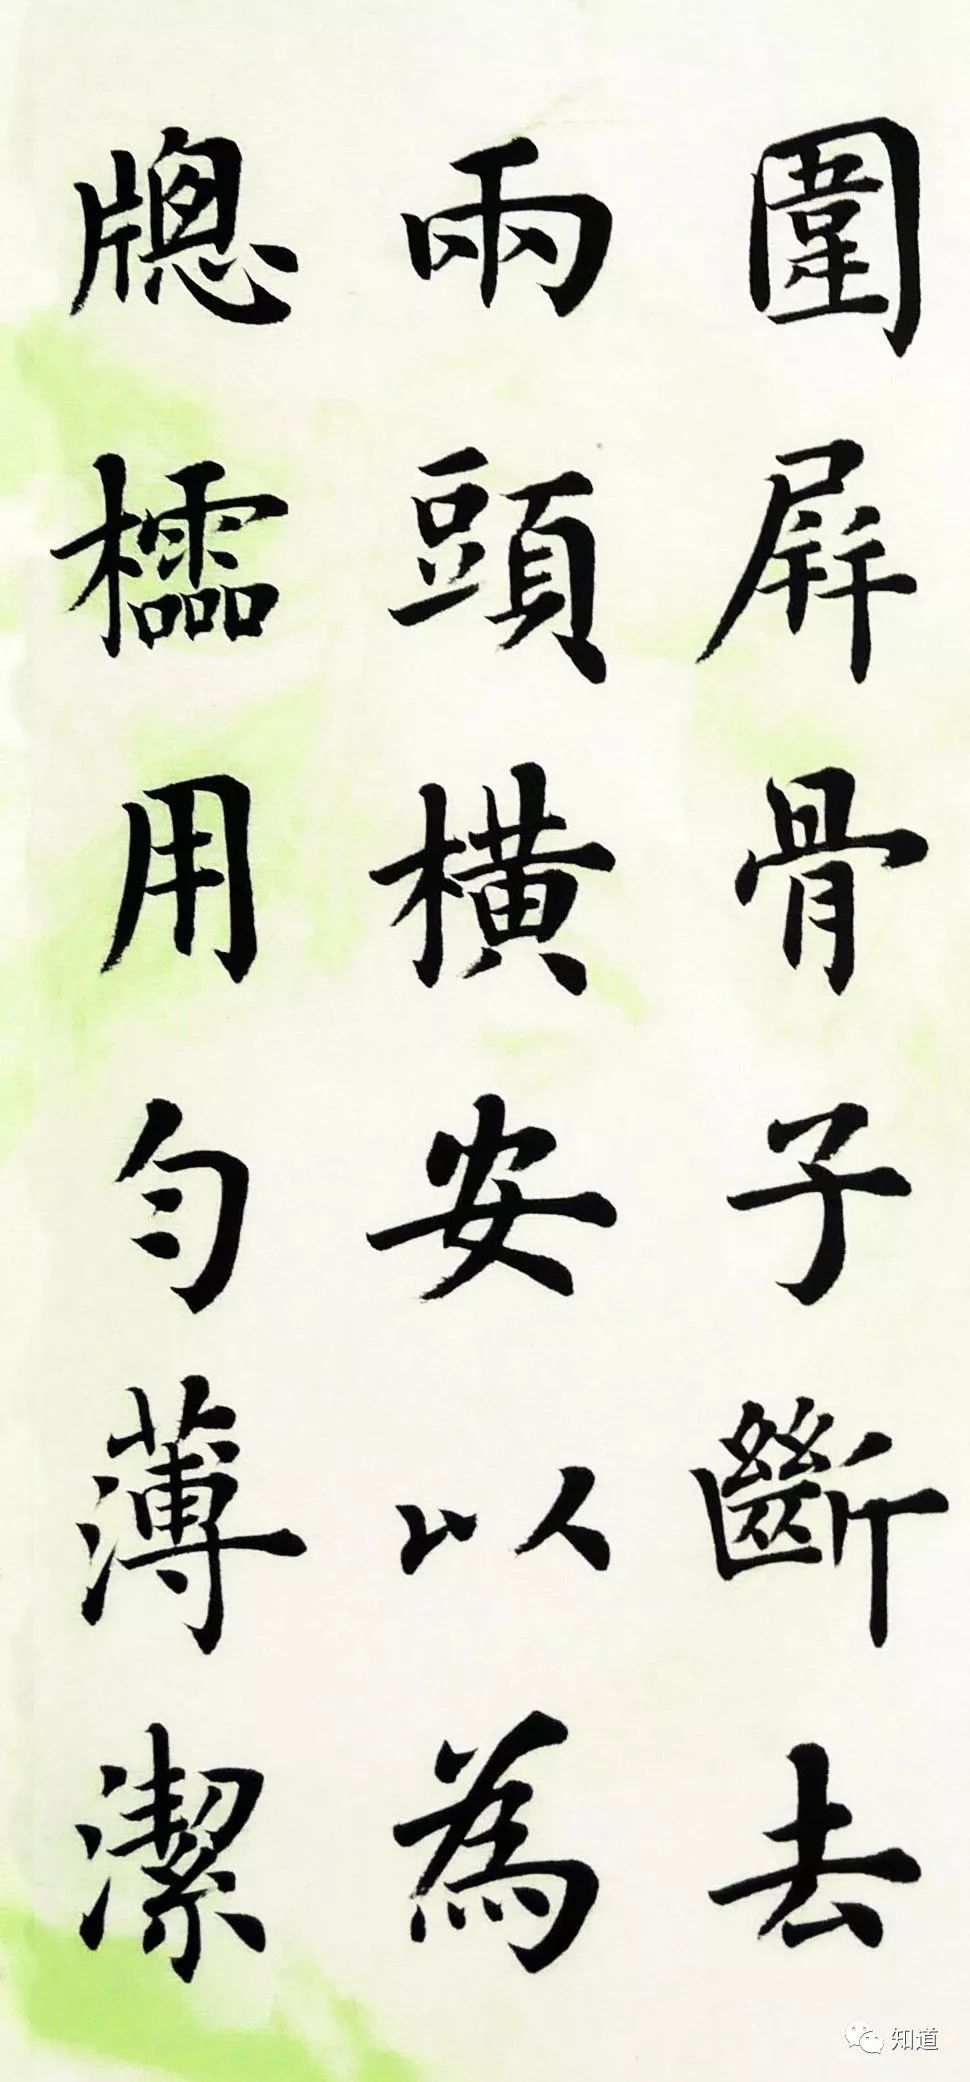 圍屏骨子斷去
兩頭橫安以為
牕櫺用勻薄潔
知道